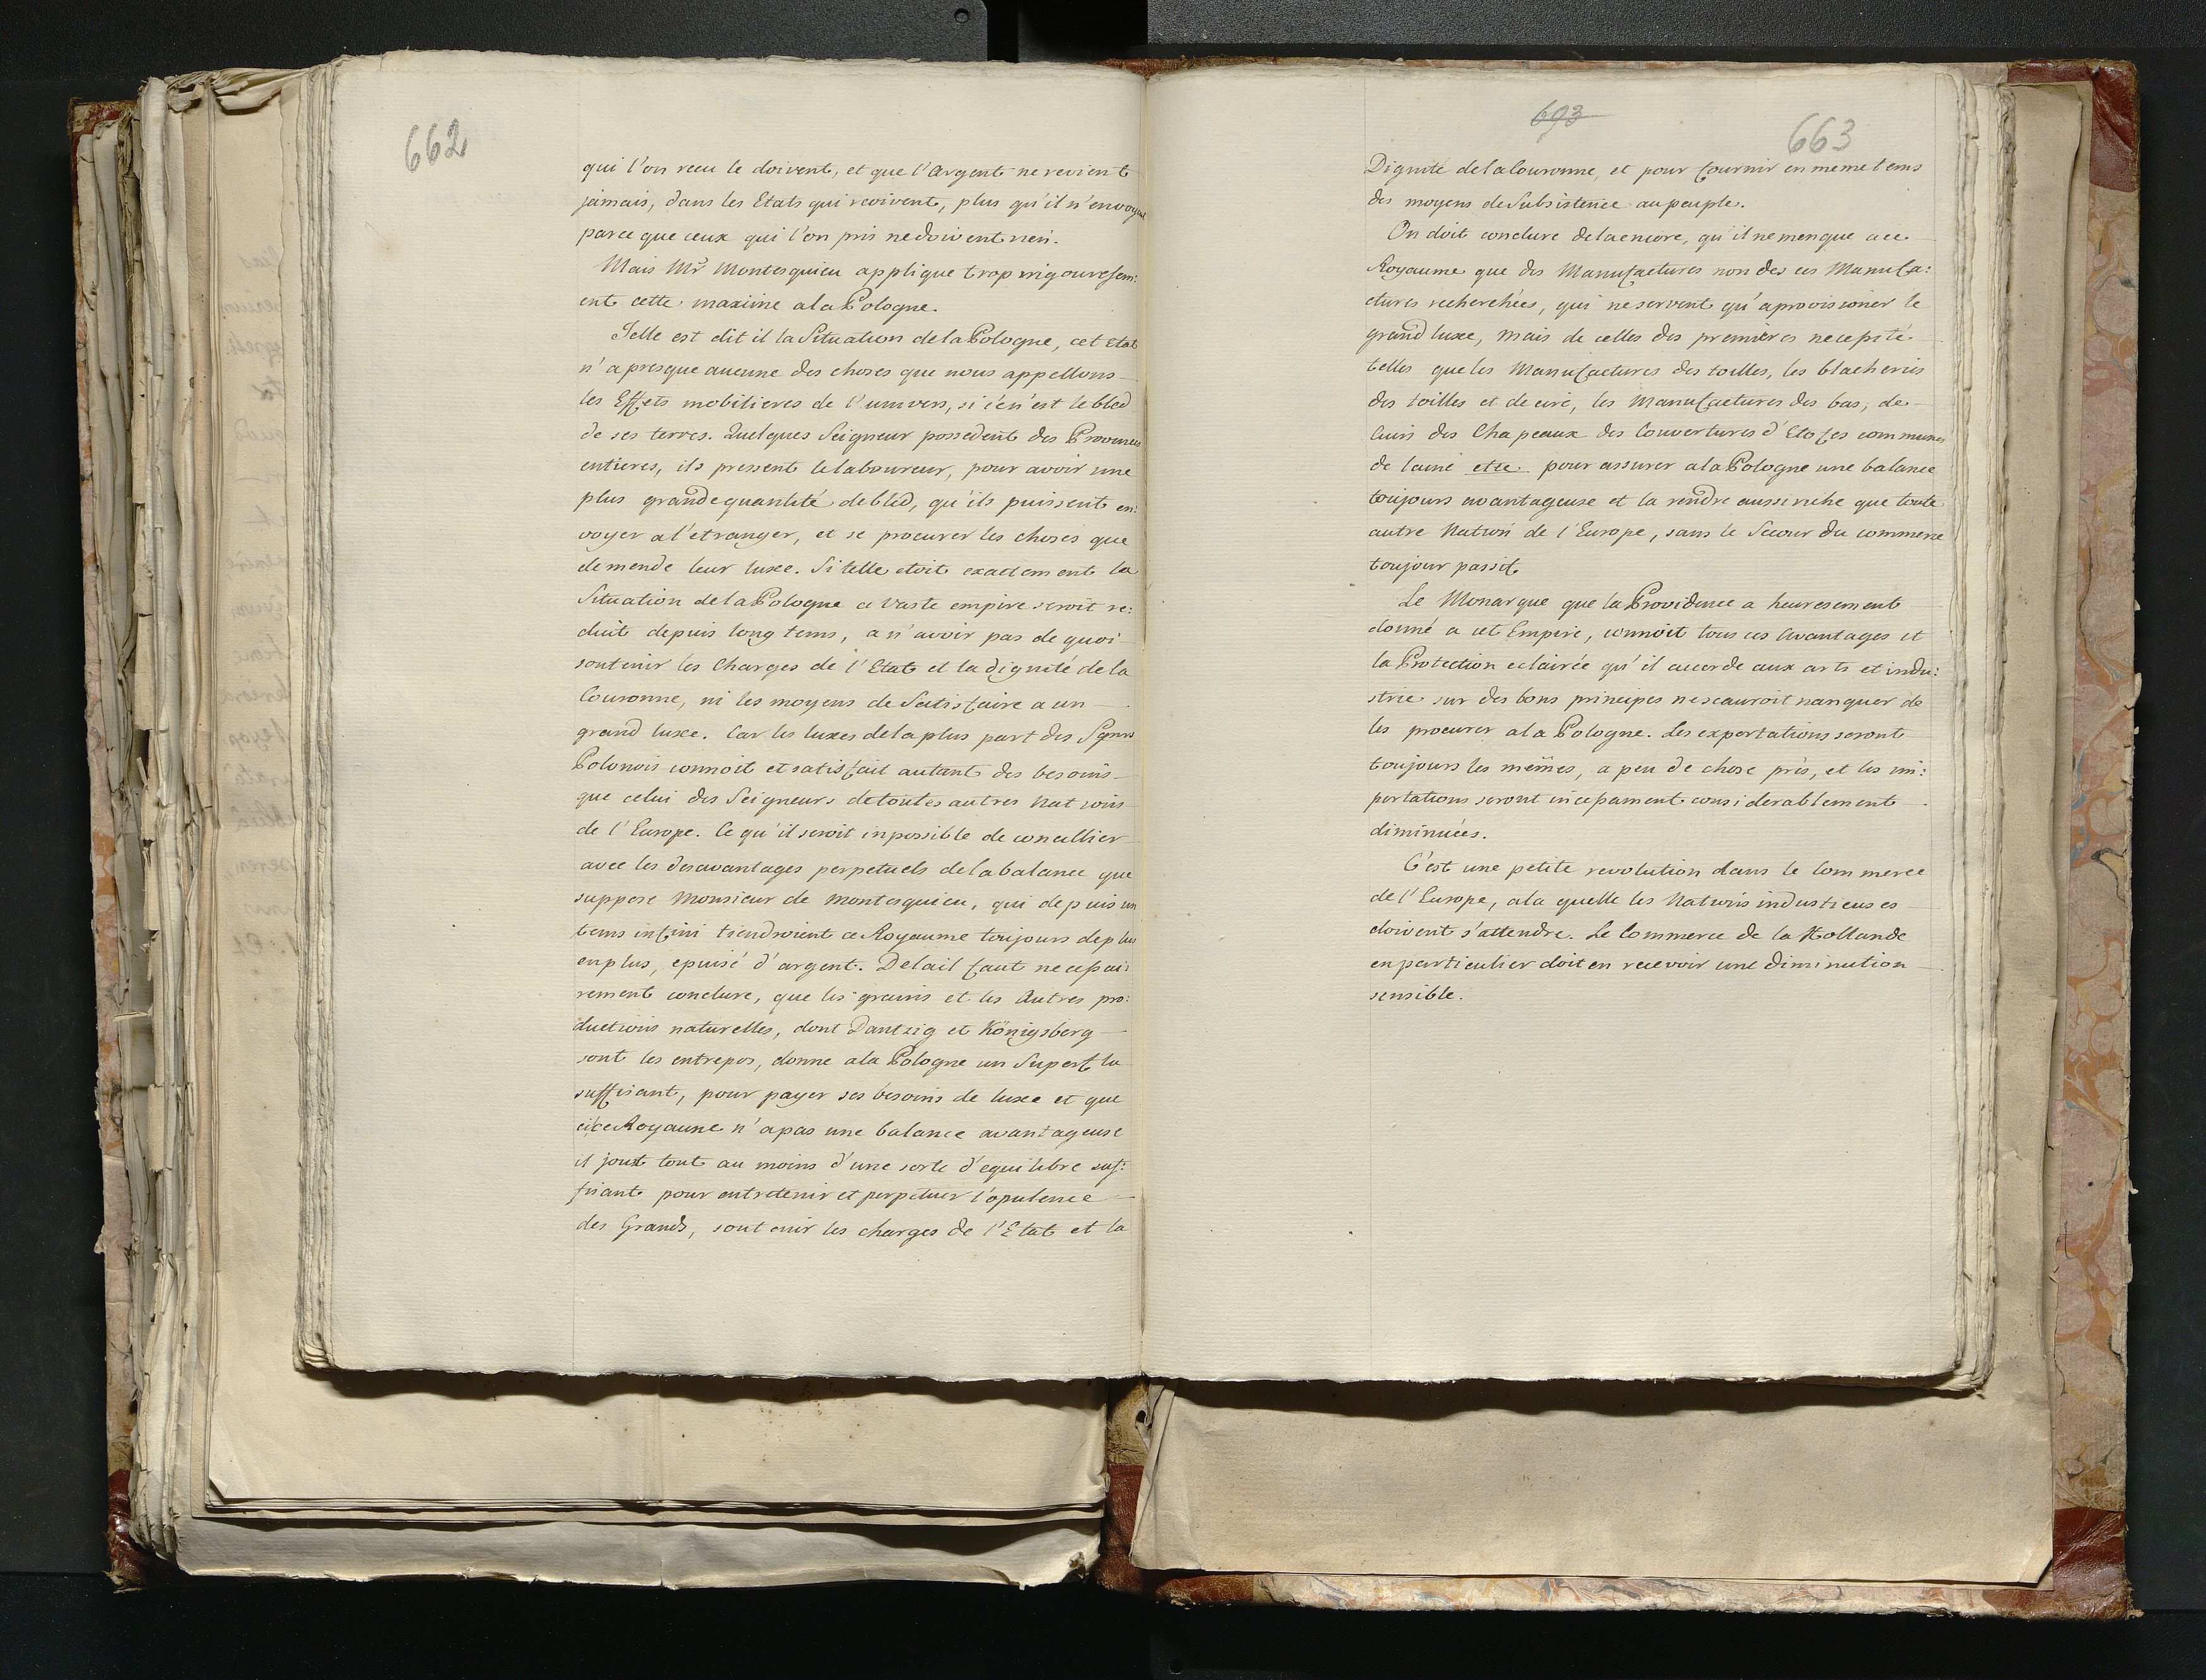 662
qui l'on recu le doivent, et que l'Argent ne revient
jamais, dans les Etats qui recoivent, plus qu'il n'envoyent
parce que ceux qui l'on pris ne doivent rien.
Mais Mr Montesquieu applique trop rrigouresem:
ent cette maxime a la Pologne.
Telle est dit il la Situation de la Pologne, cet Etat
n'a presque aucune des choses que nous appellons
les Effets mobilieres de l'univers, si ce n'est le bled
de ses terres. Quelques Seigneur possedent des Provinces
entieres, ils pressent le laboureur, pour avoir une
plus grande quantité de bled, qu'ils puissent en:
voyer a l'etranger, et se procurer les choses que
demende leur luxe. Si telle etoit exactement la
Situation de la Pologne ce vaste empire seroit re:
duit depuis long tems, a n'avoir pas de quoi
soutenir les Charges de l'Etat et la dignité de la
Couronne, ni les moyens de Satisfaire a un
grand luxe. Car les luxes de la plus part des Sgnrs
Polonois connoit et satisfait autant des besoins
que celui des Seigneurs de toutes autres Nations
de l'Europe. Ce qu'il seroit inpossible de concillier
avec les desavantages perpetuels de la balance que
suppose Monsieur de Montesquieu, qui depuis un
tems infini tiendroient ce Royaume toujours de plus
en plus, epuisé d'argent. De la il faut necessai:
rement conclure, que les grains et les Autres pro:
ductions naturelles, dont Dantzig et Königsberg
sont les entrepos, donne a la Pologne un Superflu
suffisant, pour payer ses besoins de luxe et que
si ce Royaume n'a pas une balance avantageuse
il jouit tout au moins d'une sorte d'equilibre suf:
fisant pour entretenir et perpetuer l'opulence
des Grands, soutenir les charges de l'Etat et la
693
663
Dignité de la Couronne, et pour fournir en meme tems
des moyens de Subsistence au peuple.
On doit conclure de la encore, qu'il ne menque a ce
Royaume que des Manufactures non des ces Manufa:
ctures recherchées, qui ne servent qu'aprovisioner le
grand luxe, mais de celles des premières necessité
telles que les Manufactures des toilles, les blacheries
des toilles et de cire, les Manufactures des bas, de
Cuirs des Chapeaux des Couvertures d'Etofes communes
de laine etce pour assurer a la Pologne une balance
toujours avantageuse et la rendre aussi riche que toute
autre Nation de l'Europe, sans le Secour du commerce
toujour passif
Le Monarque que la Providence a heuresement
donné a cet Empire, connoit tous ces Avantages et
la Protection eclairée qu'il accorde aux arts et indu:
strie sur des bons principes ne scauroit manquer de
les procurer a la Pologne. Les exportations seront
toujours les mêmes, a peu de chose près, et les im:
portations seront incessament considerablement
diminuées.
C'est une petite revolution dans le Commerce
de l'Europe, a la quelle les Nations industrieuses
doivent s'attendre. Le Commerce de la Hollande
en particulier doit en recevoir une diminution
sensible.